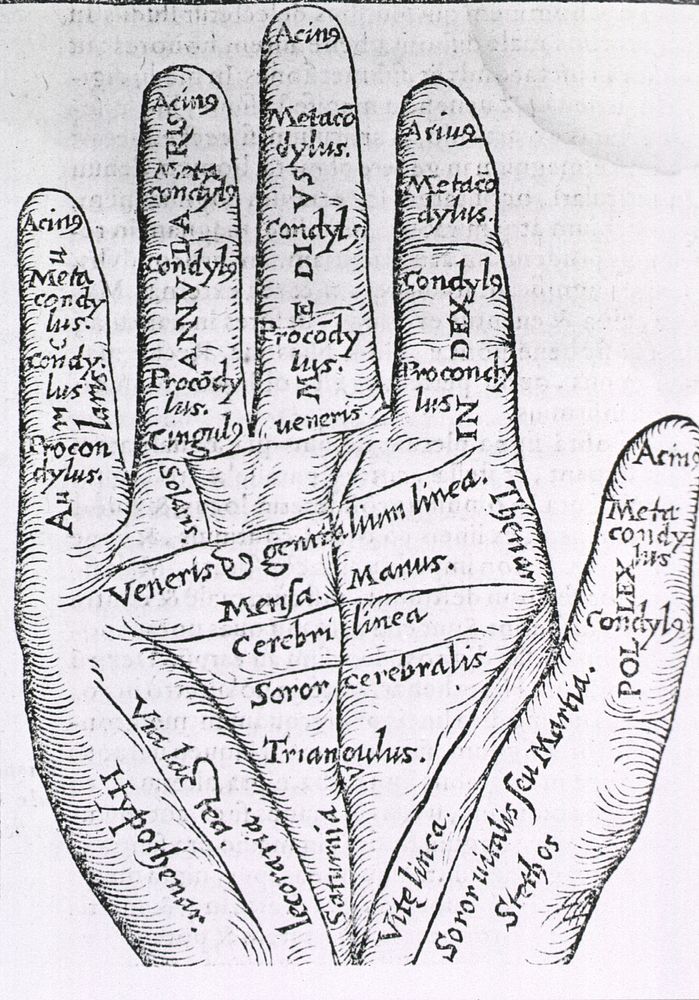 Acinꝰ
Meta
condy
lus.
condy
lus
Procon
dylus.
Auricularis
Acinꝰ
Meta
condylꝰ
Condylꝰ
Procōdy
lus.
Cingulꝰ
ANNVLARIS
Acinꝰ
Metaco
dylus.
Condylꝰ
Procōdy
lus.
veneris
MEDIVS
Acinꝰ
Metaco
dylus.
Condylꝰ
Procondy
lus
INDEX
Acinꝰ
Meta
condy
lus
Condylꝰ
POLLEX
Solaris
Thenar
Veneris & genitalium linea.
Mensa. Manus.
Cerebri linea
Soror cerebralis
Triangulus.
Hypothenar.
Iecoraria
Saturnia
Vitę linea
Soror vitalis seu Martia.
Steth os